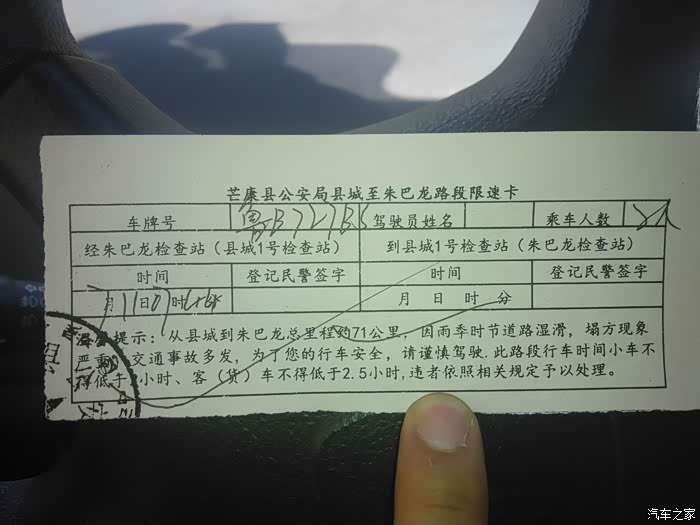 芒康县公安局县城至朱巴龙路段限速卡
车牌号 鲁B 驾驶员姓名 乘车人数
经朱巴龙检查站（县城1号检查站） 到县城1号检查站（朱巴龙检查站）
时间 登记民警签字 时间 登记民警签字
月11日 时 月 日 时 分
提示：从县城到朱巴龙总里程约71公里，因雨季时节道路湿滑，塌方现象
严重，交通事故多发，为了您的行车安全，请谨慎驾驶.此路段行车时间小车不
得低于2小时、客（货）车不得低于2.5小时,违者依照相关规定予以处理。
汽车之家